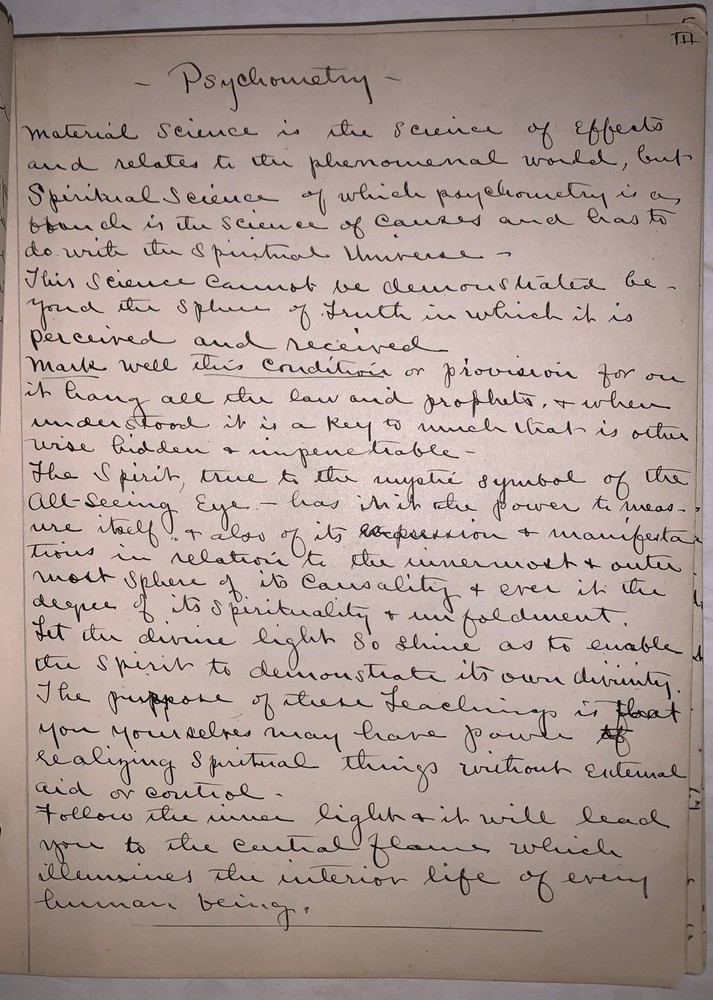 5
III
- Psychometry -
Material Science is the Science of Effects
and relates to the phenomenal world, but
Spiritual Science of which psychometry is a
branch is the Science of Causes and has to
do with the Spiritual Universe -
This Science Cannot be demonstrated be-
yond the Sphere of Truth in which it is
perceived and received
Mark well this Condition or provision for on
it hang all the law and prophets. & when
understood it is a Key to much that is other
wise hidden & impenetrable -
The Spirit, true to the mystic symbol of the
All-Seeing Eye - has in it the power to meas-
ure itself & also of its expression & manifesta
tions in relation to the innermost & outer
most Sphere of its Causality & ever it the
degree of its Spirituality & unfoldment.
Let the divine light So shine as to enable
the Spirit to demonstrate its own divinity.
The purpose of these Teachings is that
you yourselves may have power of
realizing Spiritual things without External
aid or control -
Follow the inner light & it will lead
you to the central flame which
illumines the interior life of every
human being.